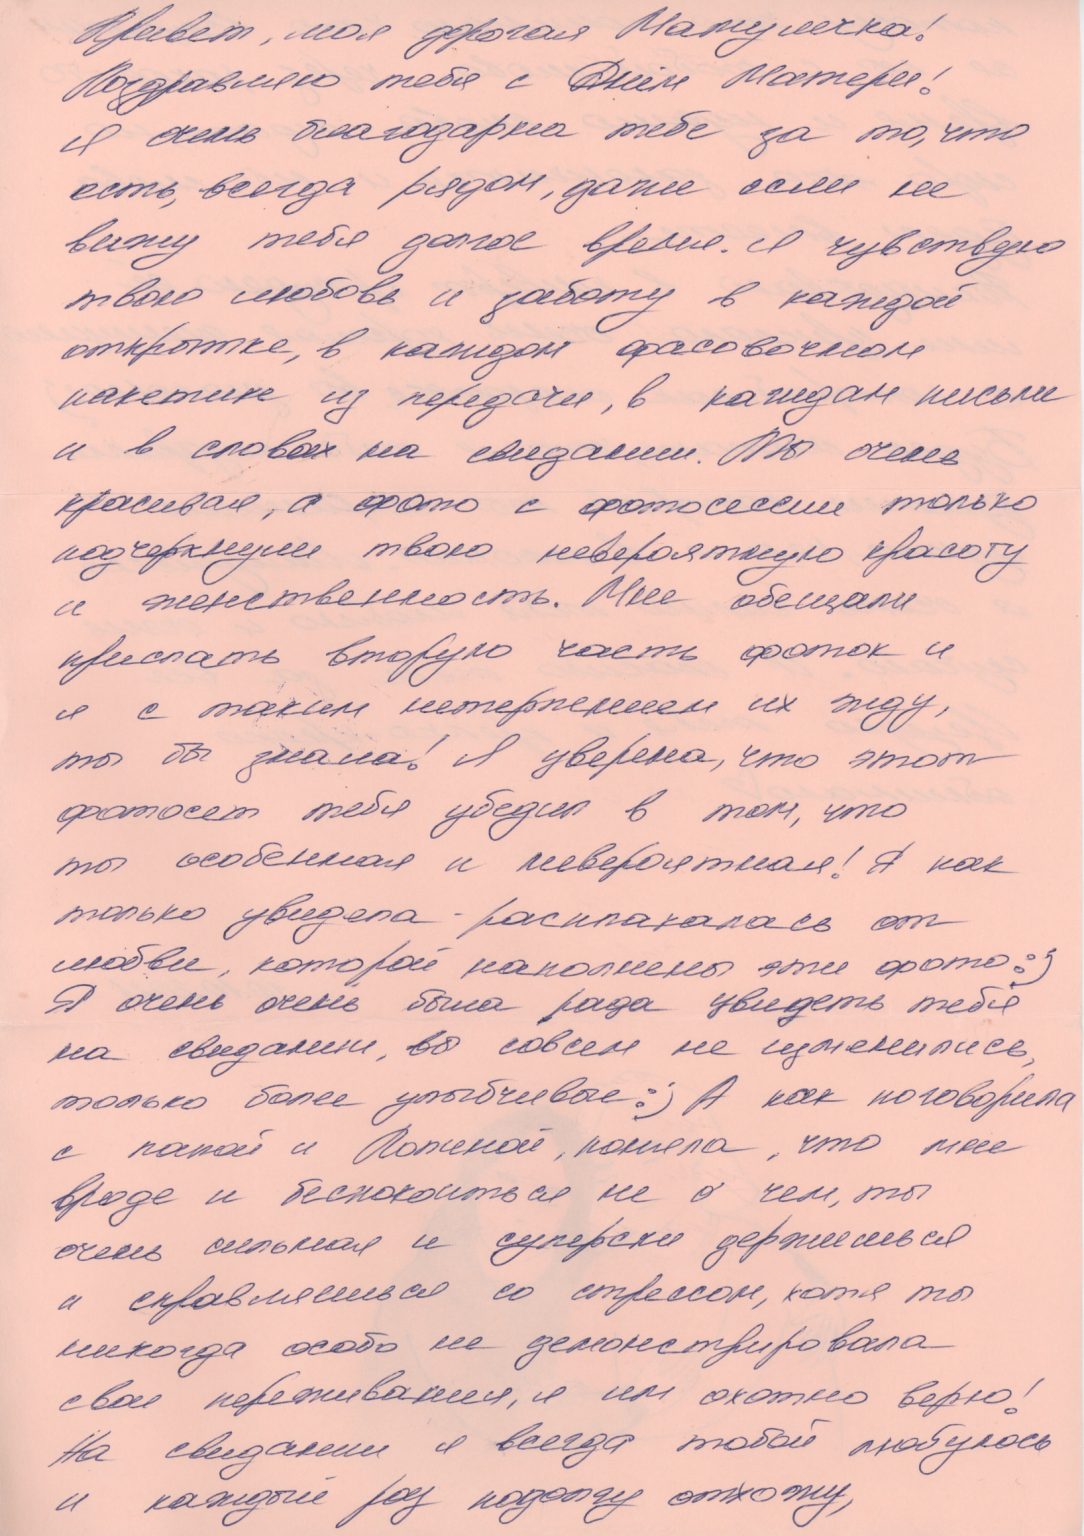 Привет, моя дорогая Матулечка!
Поздравляю тебя с Днём Матери!
Я очень благодарна тебе за то, что
есть, всегда рядом, даже если не
вижу тебя долгое время. Я чувствую
твою любовь и заботу в каждой
открытке, в каждом фасовочном
пакетике из передачи, в каждом письме
и в словах на свидании. Ты очень
красивая, а фото с фотосессии только
подчеркнули твою невероятную красоту
и женственность. Мне обещали
прислать вторую часть фоток и
я с таким нетерпением их жду,
ты бы знала! Я уверена, что этот
фотосет тебя убедил в том, что
ты особенная и невероятная! Я как
только увидела - расплакалась от
любви, которой наполнены эти фото:)
Я очень очень была рада увидеть тебя
на свидании, вы совсем не изменились,
только более улыбчивые:) А как поговорила
с папой и Полиной, поняла, что мне
вроде и беспокоиться не о чем, ты
очень сильная и суперски держишься
и справляешься со стрессом, хотя ты
никогда особо не демонстрировала
свои переживания, я им охотно верю!
На свидании я всегда тобой любуюсь
и каждый раз подолгу отхожу,